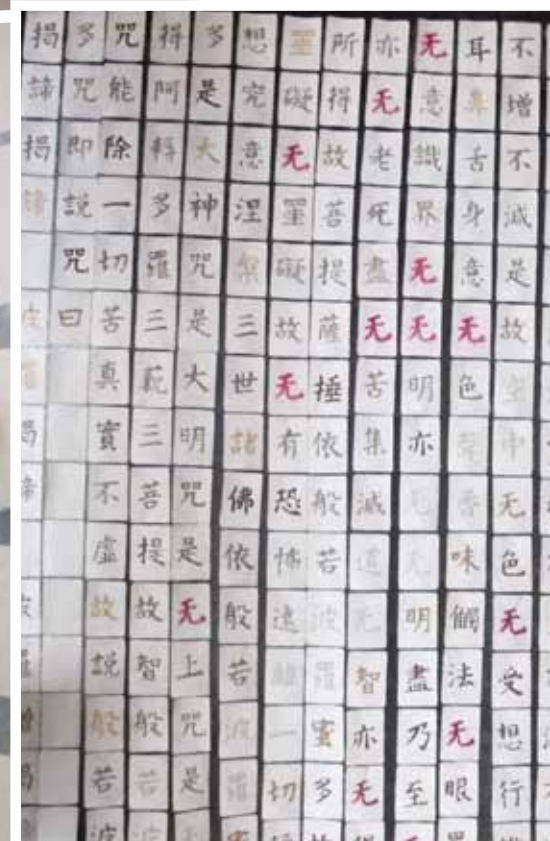 不增不減是故空中无色无受想行
耳鼻舌身意无色聲香味觸法无眼界
无意識界无无明亦无无明盡乃至无
亦无老死盡无苦集滅道无智亦无得
所得故菩提薩埵依般若波羅蜜多故
罣礙无罣礙故无有恐怖遠離一切
想究竟涅槃三世諸佛依般若波羅蜜
多是大神咒是大明咒是无上咒是无
得阿耨多羅三藐三菩提故智般若波
咒能除一切苦真實不虛故說般若波
多咒即說咒曰
揭諦揭諦波羅揭諦